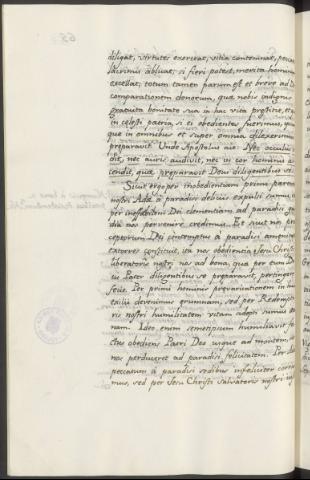 diligat, virtutes exerceat, vitia contemnat, pecca
lacrimis abluat, si fieri potest, merita hominum
excellat; totum tamen parum est et breve ad D
comparationem donorum, quæ nobis indignis
gratuita bonitate sua in hac vita præstitit, et q
in cœlesti patria, si ei obedientes fuerimus, eum
que in omnibus et super omnia dilexerimus
præparavit. Unde Apostolus ait: Nec oculus
dit, nec auris audivit, nec in cor hominis a
cendit, quæ præparavit Deus diligentibus se.
Sicut ergo per inobedientiam primi parentis
nostri Adæ à paradiso deliciis expulsi sumus,
per ineffabilem Dei clementiam ad paradisi ga
dia nos pervenire credimus. Et sicut nos præ
ceptorum Dei contemptus à paradisi
constituit, ita nos obedientia Jesu Christi
liberatoris nostri nos ad bona, quæ per eum D
us Pater diligentibus se præparavit, pertinger
fecit. Per primi hominis prævaricationem in m
talia devenimus ærumnam, sed per Redempto
ris nostri humilitatem vitam adepti sumus æter
nam. Ideo enim semetipsum humiliavit fa
ctus obediens Patri Deo usque ad mortem
nos perduceret ad paradisi felicitatem. Per
peccatum à paradisi sedibus infeliciter
mus, sed per Jesu Christi salvatoris nostri